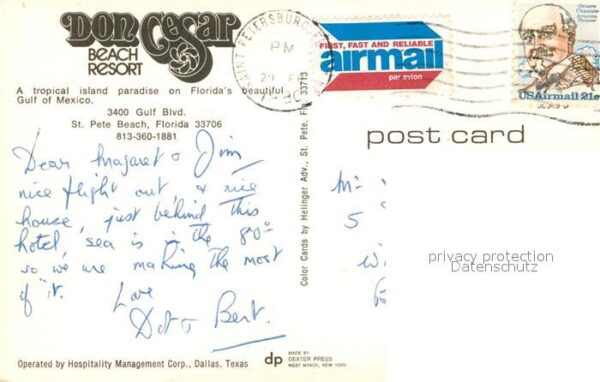 Don CeSar
BEACH
RESORT
A tropical island paradise on Florida's beautiful
Gulf of Mexico.
3400 Gulf Blvd.
St. Pete Beach, Florida 33706
813-360-1881
Dear Magaret & Jim
nice flight out & nice
house, just behind this
hotel, sea is in the 80s
so we are making the most
of it. Love
Dot & Bert.
Operated by Hospitality Management Corp., Dallas, Texas
Color Cards by Helinger Adv., St. Pete, Fla. 33713
dp
MADE BY
DEXTER PRESS
WEST NYACK, NEW YORK
SAINT PETERSBURG, FL
PM
FIRST, FAST AND RELIABLE
airmail
par avion
Octave
Chanute
Aviation
Pioneer
USAirmail 21c
post card
5
privacy protection
Datenschutz